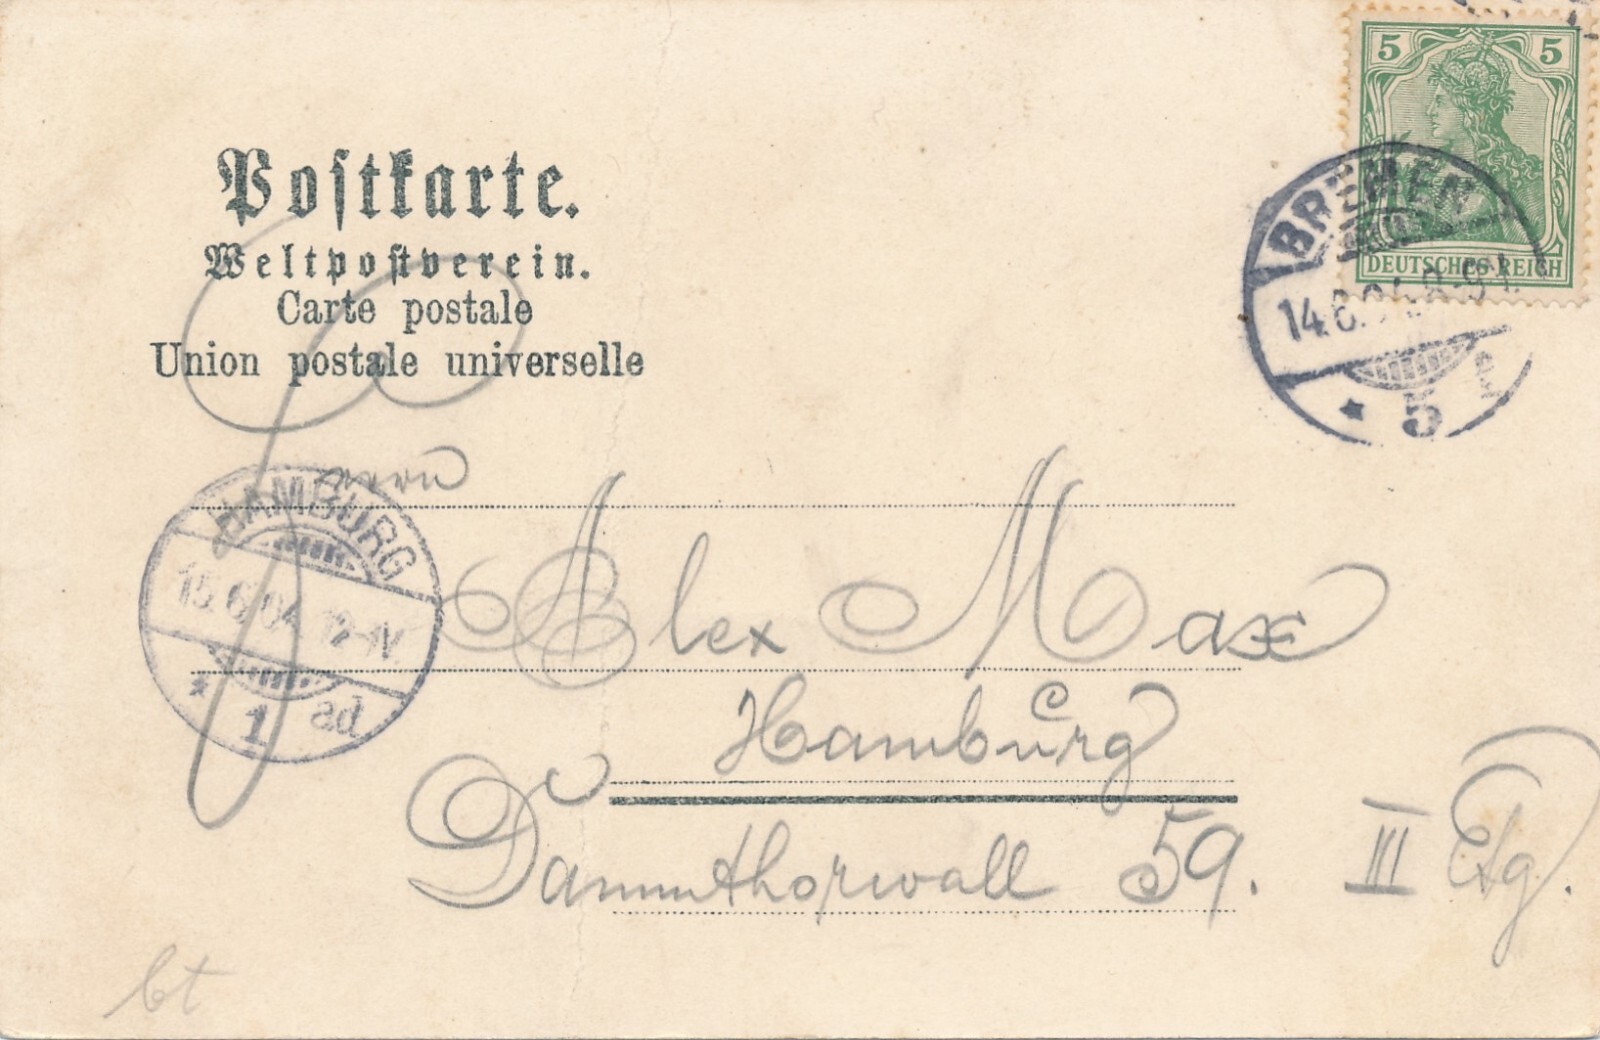 5 5
DEUTSCHES REICH
BREMEN
14.6.04. 8-9 V.
* 5
Postkarte.
Weltpostverein.
Carte postale
Union postale universelle
Herrn
HAMBURG
15.6.04 12-1 V.
* 1 ad
Alex Max
Hamburg
Dammthorwall 59. III Etg.
bt